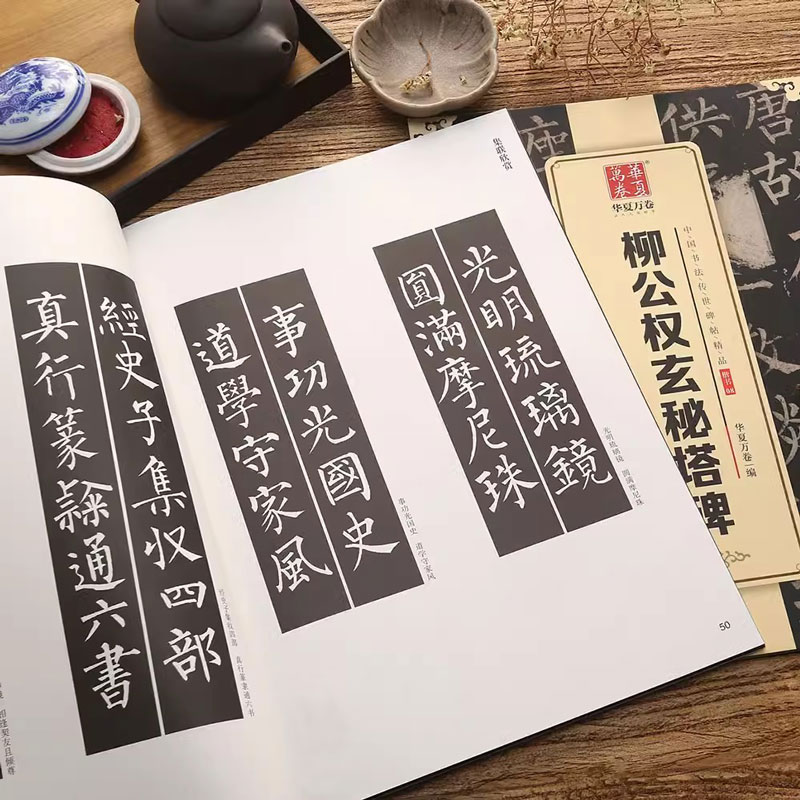 集联欣赏
光明琉璃鏡
圓滿摩尼珠
光明琉璃镜 圆满摩尼珠
事功光國史
道學守家風
事功光国史 道学守家风
經史子集收四部
真行篆隸通六書
经史子集收四部 真行篆隶通六书
相逢契友且倾尊
50
華夏萬卷
华夏万卷
中国书法传世碑帖精品
楷书 08
柳公权玄秘塔碑
华夏万卷 编
唐故
供
座